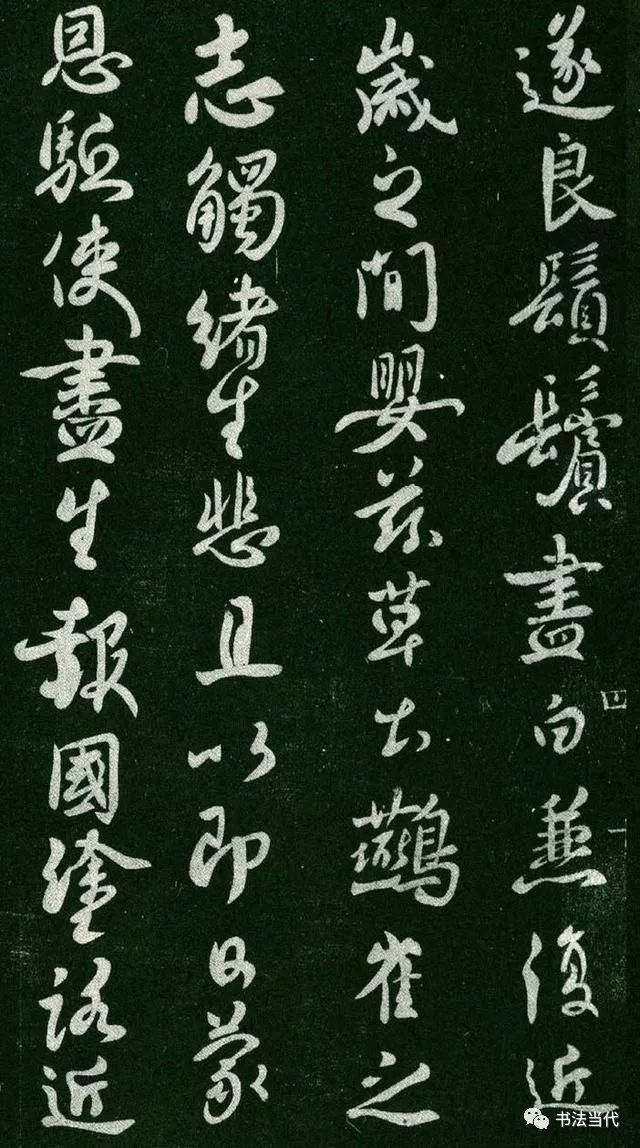 遂良鬚鬢盡白兼復近
歲之間嬰茲草土鷰雀之
志觸緒生悲且以即日蒙
恩駈使盡生報國塗路近
书法当代